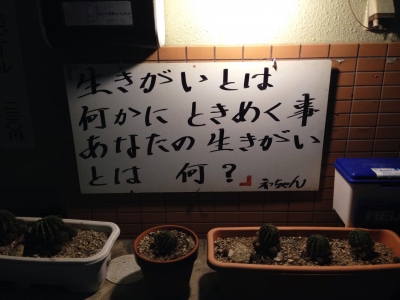 生きがいとは
何かに ときめく事
あなたの生きがい
とは 何？